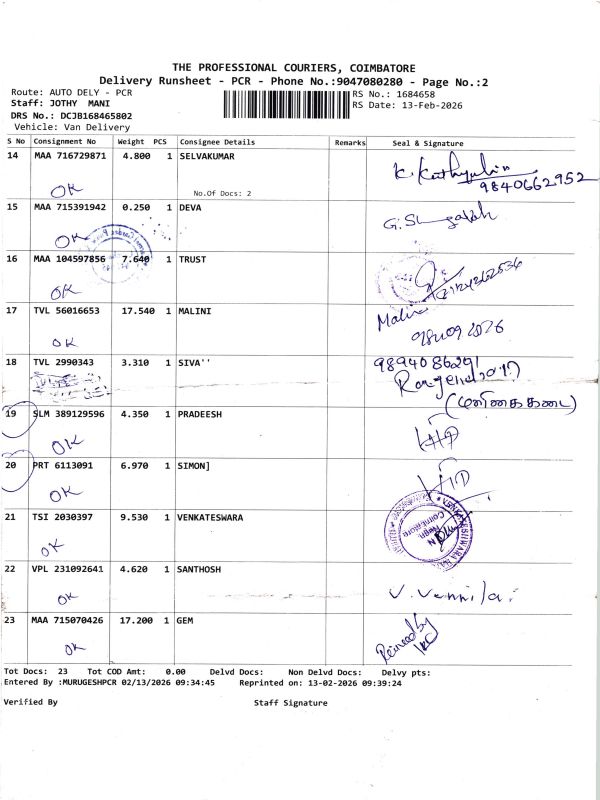 THE PROFESSIONAL COURIERS, COIMBATORE
Delivery Runsheet - PCR - Phone No.:9047080280 - Page No.:2
Route: AUTO DELY - PCR
RS No.: 1684658
Staff: JOTHY MANI
RS Date: 13-Feb-2026
DRS No.: DCJB168465802
Vehicle: Van Delivery
S No Consignment No Weight PCS Consignee Details Remarks Seal & Signature
14 MAA 716729871 4.800 1 SELVAKUMAR
OK No.Of Docs: 2
9840662952
15 MAA 715391942 0.250 1 DEVA
OK
16 MAA 104597856 7.640 1 TRUST
OK
17 TVL 56016653 17.540 1 MALINI
Malini
OK
18 TVL 2990343 3.310 1 SIVA''
9894086291
(மளிகை கடை)
19 SLM 389129596 4.350 1 PRADEESH
OK
20 PRT 6113091 6.970 1 SIMON]
OK
21 TSI 2030397 9.530 1 VENKATESWARA
OK
22 VPL 231092641 4.620 1 SANTHOSH
OK
V. Vennila
23 MAA 715070426 17.200 1 GEM
OK
Received by
Tot Docs: 23 Tot COD Amt: 0.00 Delvd Docs: Non Delvd Docs: Delvy pts:
Entered By :MURUGESHPCR 02/13/2026 09:34:45 Reprinted on: 13-02-2026 09:39:24
Verified By Staff Signature